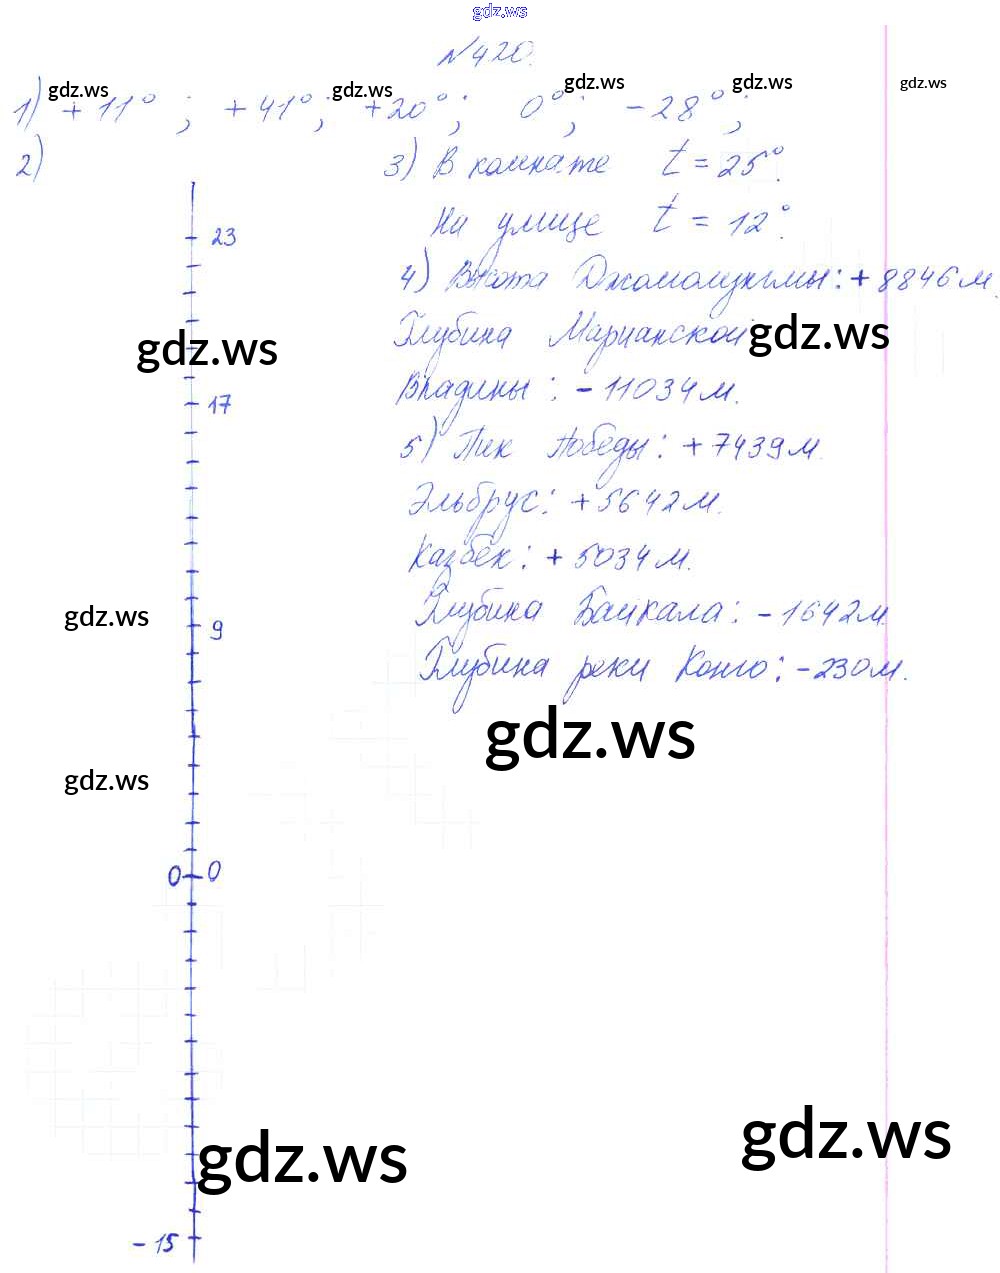 gdz.ws
№420.
gdz.ws gdz.ws gdz.ws gdz.ws gdz.ws
1) +11°; +41°; +20°; 0°; -28°;
2)
23
17
9
0 0
-15
3) В комнате t = 25°.
На улице t = 12°.
4) Высота Джомолунгмы: +8846м.
Глубина Марианской
Впадины: -11034м.
5) Пик Победы: +7439м.
Эльбрус: +5642м.
Казбек: +5034м.
Глубина Байкала: -1642м.
Глубина реки Конго: -230м.
gdz.ws
gdz.ws
gdz.ws
gdz.ws
gdz.ws
gdz.ws
gdz.ws